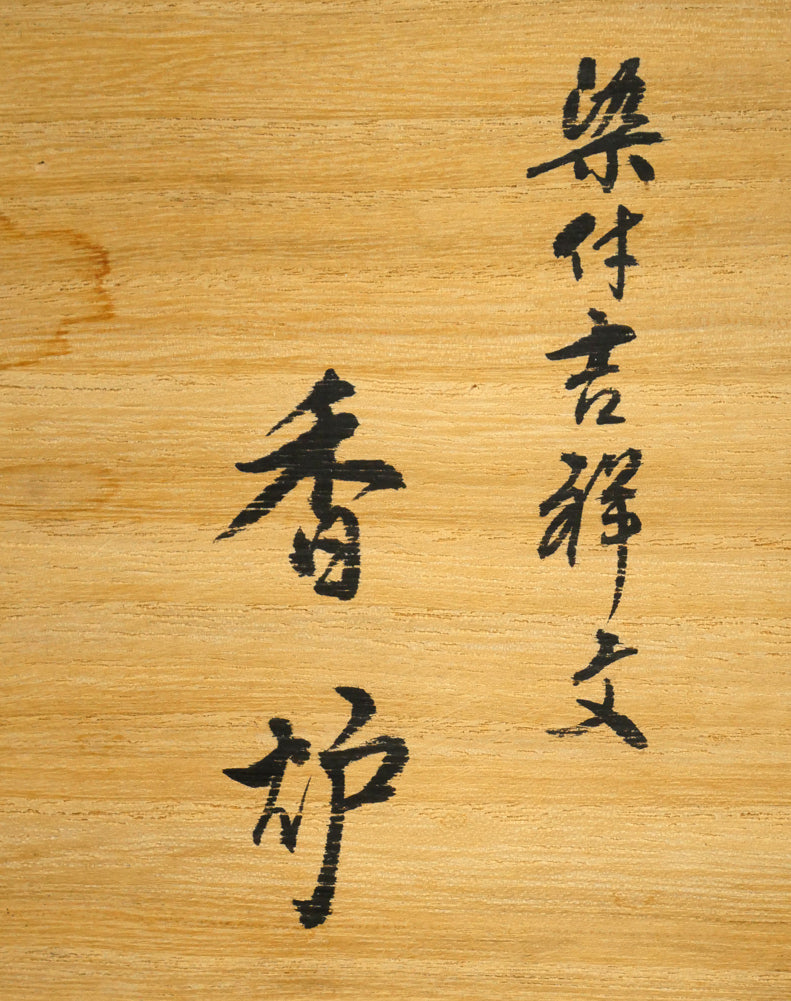 染付吉祥文
香炉